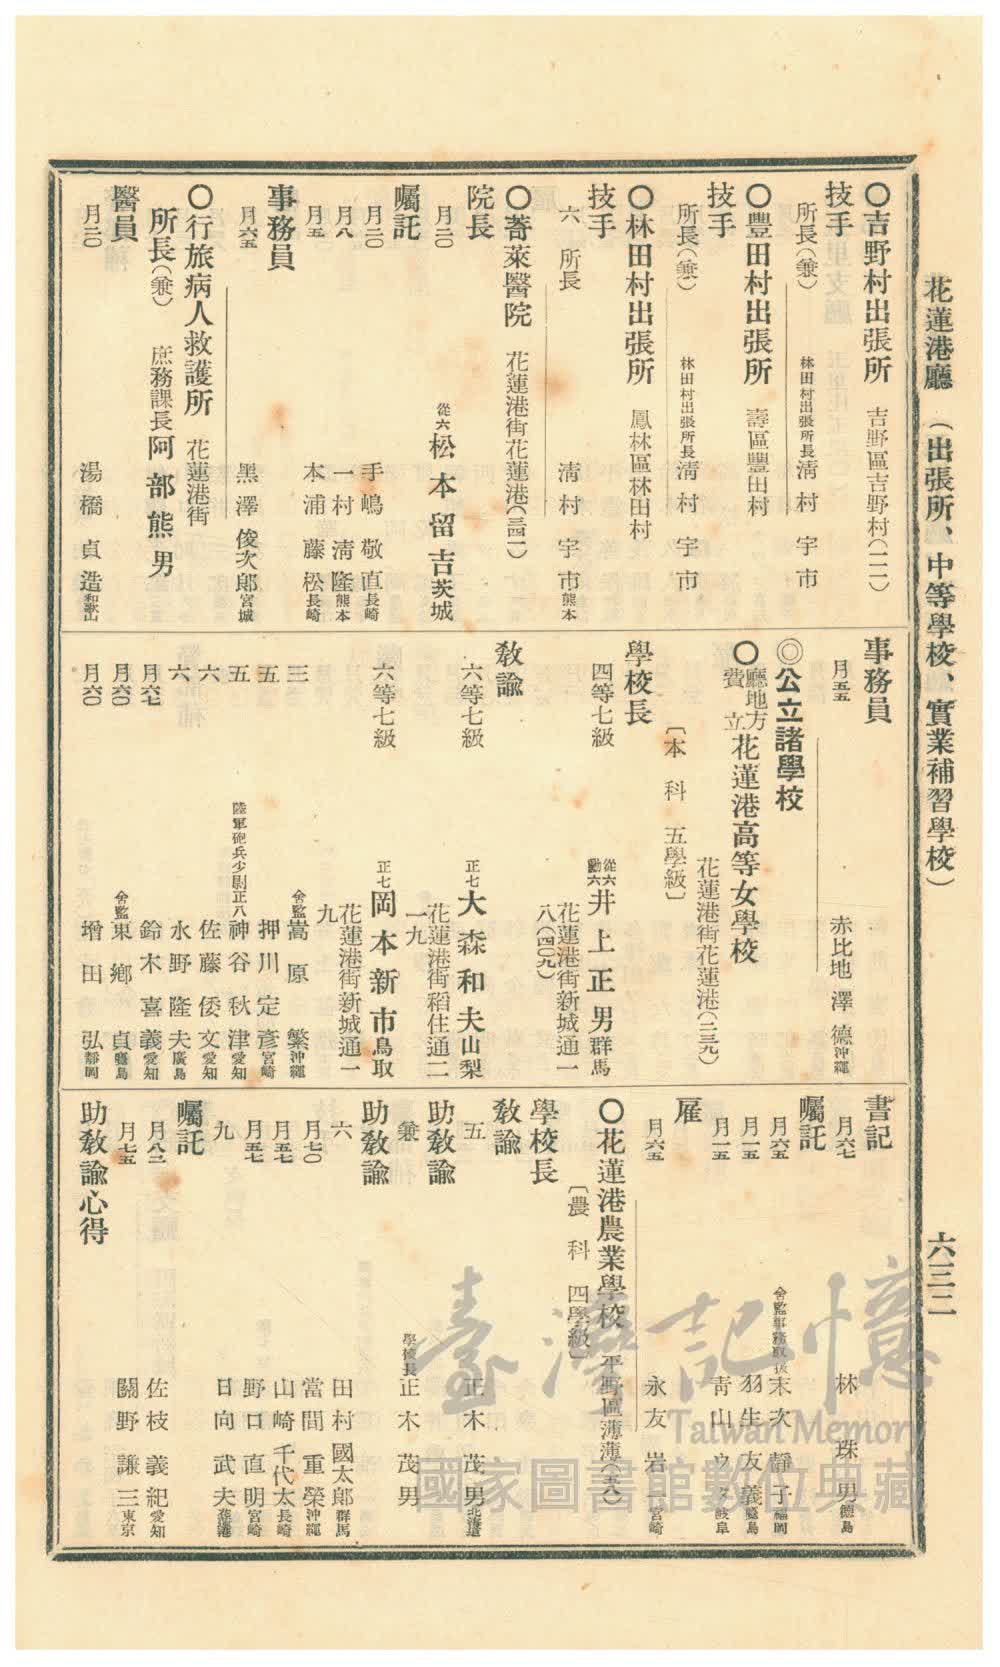 花蓮港廳 （出張所、中等學校、實業補習學校）
六三二
〇吉野村出張所 吉野區吉野村(一二)
技手
所長(兼) 林田村出張所長 淸村宇市
〇豐田村出張所 壽區豐田村
技手
所長(兼) 林田村出張所長 淸村宇市
〇林田村出張所 鳳林區林田村
技手
六 所長 淸村宇市 熊本
〇蒼萊醫院 花蓮港街花蓮港(三四一)
院長
月二〇 從六 松本留吉 茨城
囑託
月二〇 手嶋敬直 長崎
月八 一村淸隆 熊本
月五 本浦藤松 長崎
事務員
月六五 黑澤俊次郞 宮城
〇行旅病人救護所 花蓮港街
所長(兼) 庶務課長 阿部熊男
醫員
月二〇 湯橋貞造 和歌山
事務員
月五五 赤比地澤德 沖繩
◎公立諸學校
〇廳地方費立 花蓮港高等女學校
花蓮港街花蓮港(二三九)
〔本科 五學級〕
學校長
四等七級 從六 勳六 井上正男 群馬
花蓮港街新城通一八(四〇九)
敎諭
六等七級 正七 大森和夫 山梨
花蓮港街稻住通二一九
六等七級 正七 岡本新市 鳥取
花蓮港街新城通一九
三 舍監 嵩原繁 沖繩
五 押川定彥 宮崎
五 陸軍砲兵少尉正八 神谷秋津 愛知
六 佐藤倭文 愛知
六 永野隆夫 廣島
月六七 鈴木喜義 愛知
月六〇 舍監 東鄕貞
月六〇 增田弘 靜岡
書記
月六七 林珠男 德島
囑託
月六五 舍監事務取扱 末次靜子 福岡
月一五 羽生友義
月一五 靑山 岐阜
雇
月六五 永友岩一 宮崎
〇花蓮港農業學校 平野區薄薄(五八)
〔農科 四學級〕
學校長
敎諭
五 正木茂男 北海道
助敎諭
兼 學校長 正木茂男
助敎諭
六 田村國太郞 群馬
月七〇 當間重榮 沖繩
月五七 山崎千代太 長崎
月五七 野口直明 宮崎
九 日向武夫 花蓮港
囑託
月八二 佐枝義紀 愛知
月七五 關野謙三 東京
助敎諭心得
臺灣記憶
Taiwan Memory
國家圖書館數位典藏